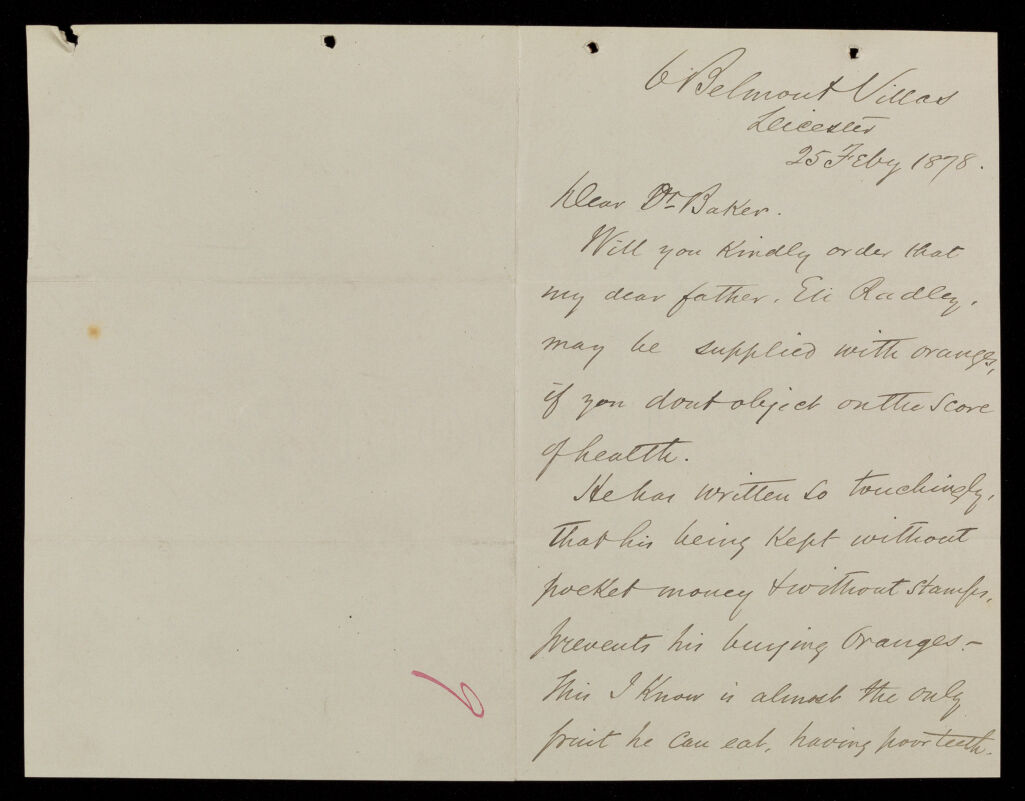 6 Belmont Villas
Leicester
25 Feby 1878.
Dear Dr Baker.
Will you kindly order that
my dear father, Eli Radley,
may be supplied with oranges,
if you dont object on the score
of health.
He has written so touchingly,
that his being kept without
pocket money & without stamps,
prevents his buying Oranges –
This I know is almost the only
fruit he can eat, having poor teeth.
6